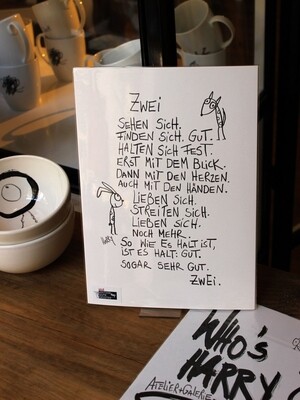 Zwei
Sehen sich.
Finden sich. Gut.
Halten sich fest.
Erst mit dem Blick.
Dann mit den Herzen.
Auch mit den Händen.
Lieben sich.
Streiten sich.
Lieben sich.
Noch mehr.
So wie es halt ist,
ist es halt: gut.
Sogar sehr gut.
Zwei.
WHO'S
HARRY
ATELIER+GALERIE